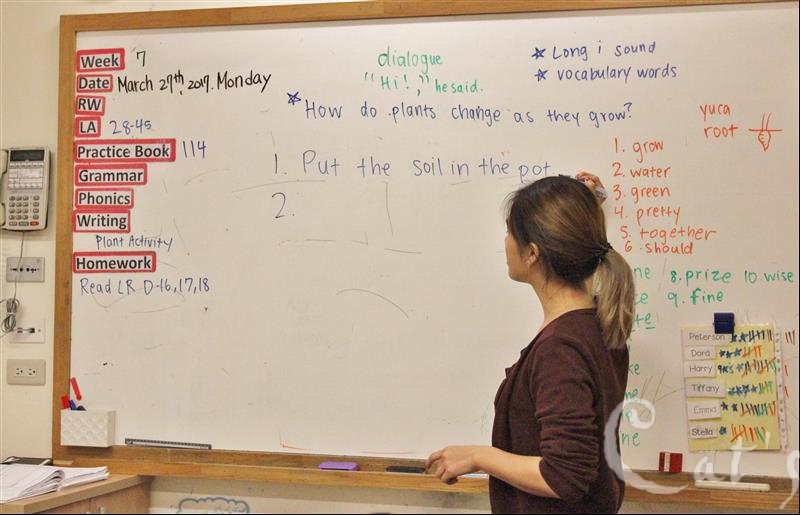 Week 7
Date March 27th, 2017. Monday
RW
LA 28-45
Practice Book 114
Grammar
Phonics
Writing
Plant Activity
Homework
Read LR D-16,17,18
dialogue
"Hi!," he said.
Long i sound
vocabulary words
How do plants change as they grow?
1. Put the soil in the pot
2.
yuca
root
1. grow
2. water
3. green
4. pretty
5. together
6. should
8. prize 10. wise
9. fine
Peterson
Dora
Harry
Tiffany
Emma
Stella